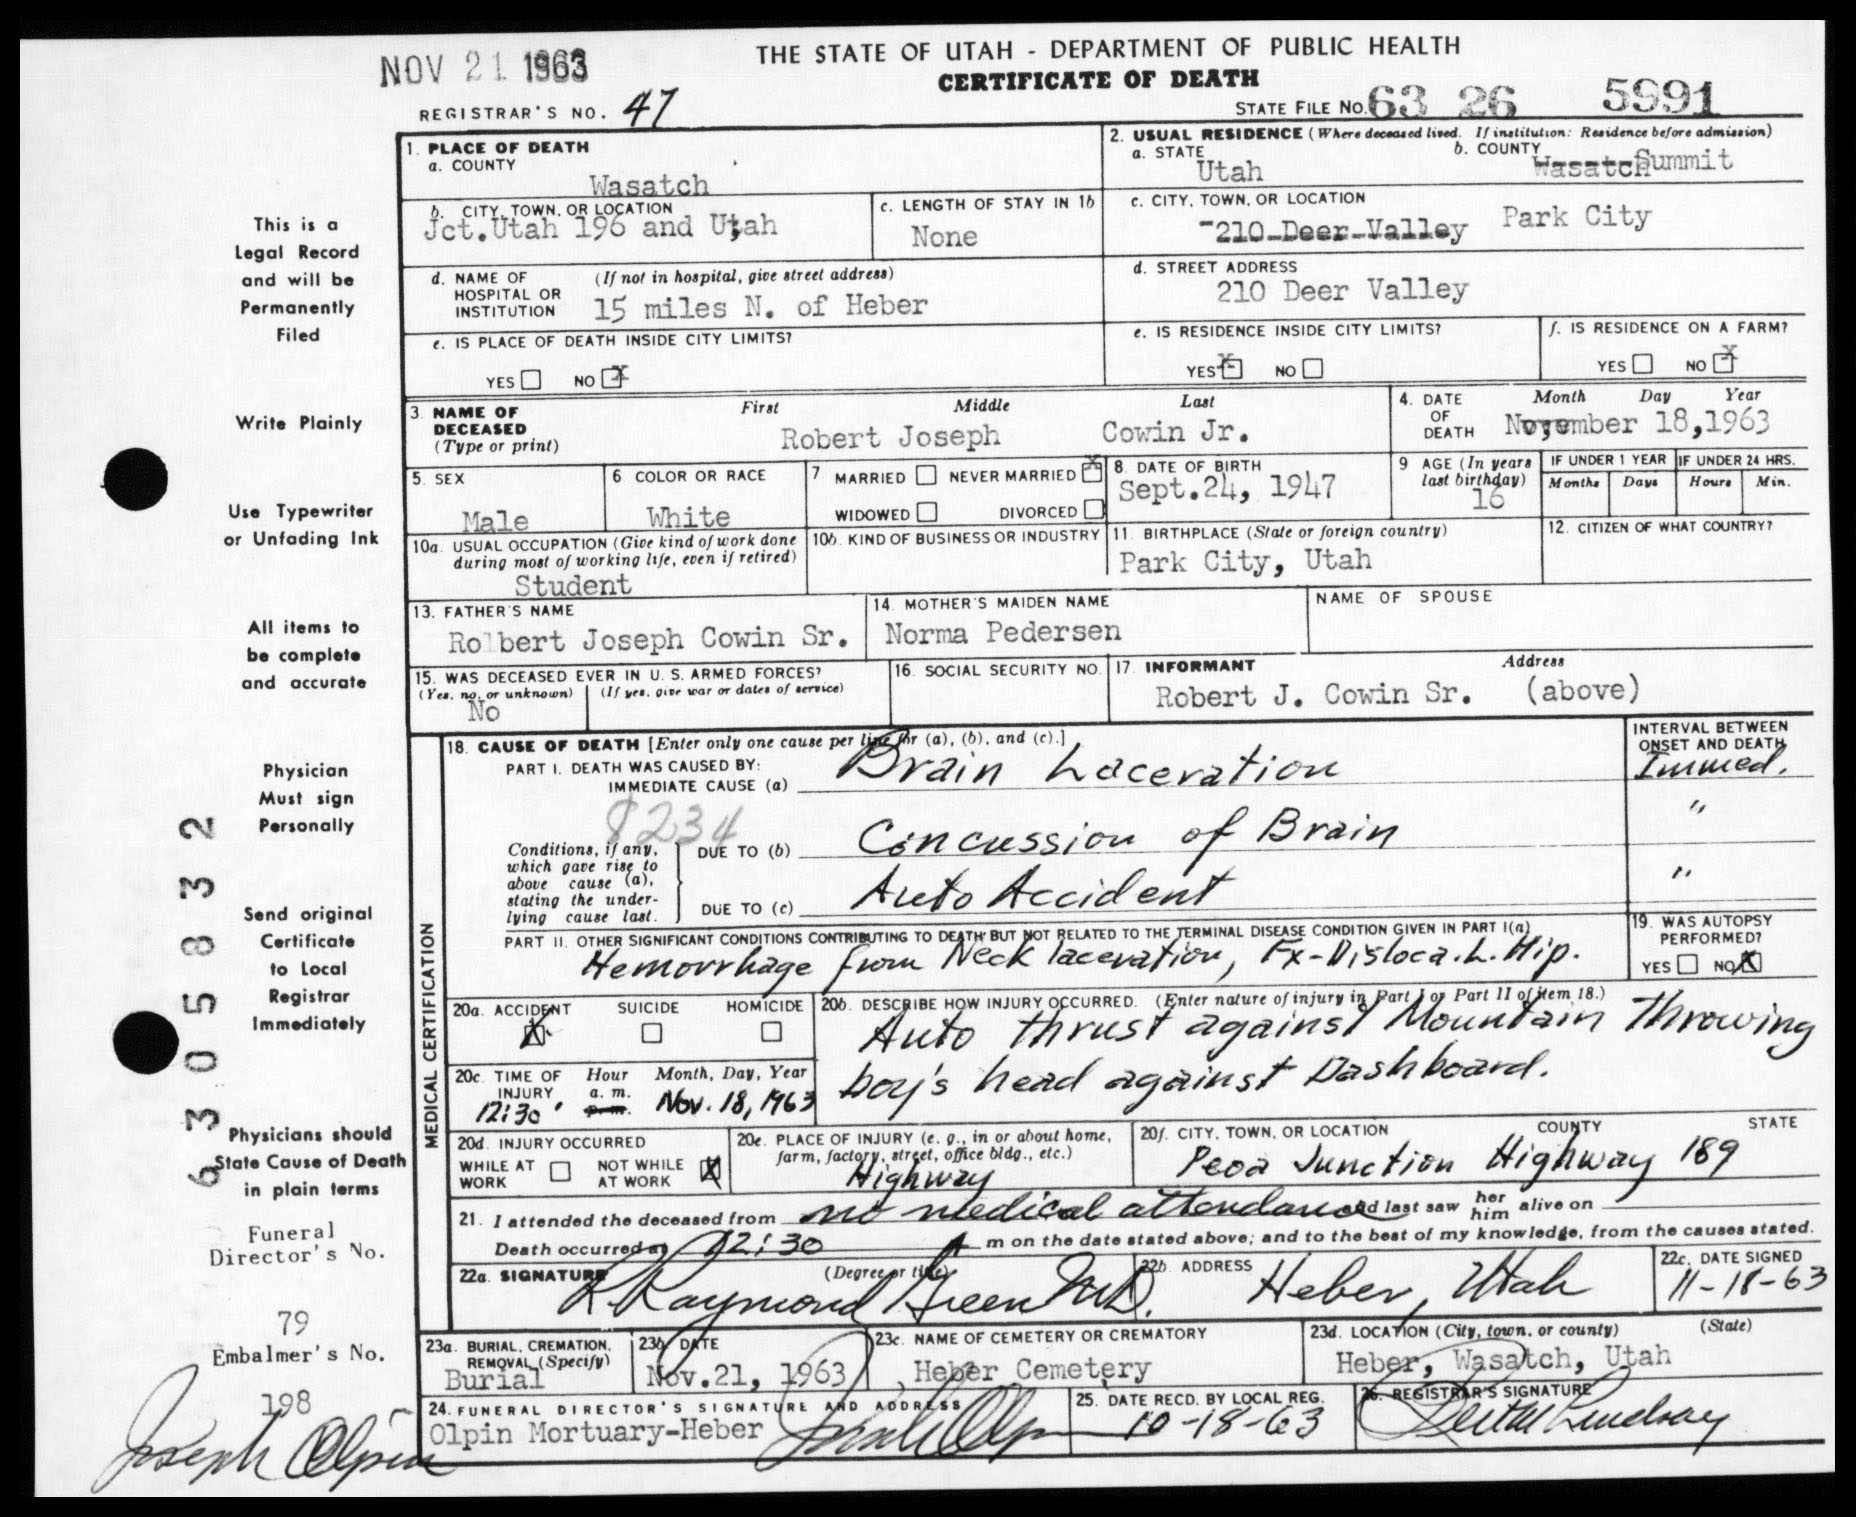 NOV 21 1963
THE STATE OF UTAH - DEPARTMENT OF PUBLIC HEALTH
CERTIFICATE OF DEATH
REGISTRAR'S NO. 47
STATE FILE NO. 63 26 5991
1. PLACE OF DEATH
a. COUNTY
Wasatch
2. USUAL RESIDENCE (Where deceased lived. If institution: Residence before admission)
a. STATE
Utah
b. COUNTY
Wasatch Summit
b. CITY, TOWN, OR LOCATION
Jct.Utah 196 and Utah
c. LENGTH OF STAY IN 1b
None
c. CITY, TOWN, OR LOCATION
210 Deer Valley Park City
d. NAME OF HOSPITAL OR INSTITUTION
(If not in hospital, give street address)
15 miles N. of Heber
d. STREET ADDRESS
210 Deer Valley
e. IS PLACE OF DEATH INSIDE CITY LIMITS?
YES NO X
e. IS RESIDENCE INSIDE CITY LIMITS?
YES X NO
f. IS RESIDENCE ON A FARM?
YES NO X
3. NAME OF DECEASED
(Type or print)
First Middle Last
Robert Joseph Cowin Jr.
4. DATE OF DEATH
Month Day Year
November 18,1963
5. SEX
Male
6. COLOR OR RACE
White
7 MARRIED NEVER MARRIED X
WIDOWED DIVORCED
8. DATE OF BIRTH
Sept.24, 1947
9 AGE (In years last birthday)
16
IF UNDER 1 YEAR
Months Days
IF UNDER 24 HRS.
Hours Min.
10a. USUAL OCCUPATION (Give kind of work done
during most of working life, even if retired)
Student
10b. KIND OF BUSINESS OR INDUSTRY
11. BIRTHPLACE (State or foreign country)
Park City, Utah
12. CITIZEN OF WHAT COUNTRY?
13. FATHER'S NAME
Rolbert Joseph Cowin Sr.
14. MOTHER'S MAIDEN NAME
Norma Pedersen
NAME OF SPOUSE
15. WAS DECEASED EVER IN U. S. ARMED FORCES?
(Yes, no, or unknown) (If yes, give war or dates of service)
No
16. SOCIAL SECURITY NO.
17. INFORMANT Address
Robert J. Cowin Sr. (above)
MEDICAL CERTIFICATION
18. CAUSE OF DEATH [Enter only one cause per line for (a), (b), and (c).]
PART I. DEATH WAS CAUSED BY:
IMMEDIATE CAUSE (a) Brain Laceration
INTERVAL BETWEEN ONSET AND DEATH
Immed.
8234
Conditions, if any, which gave rise to above cause (a), stating the underlying cause last.
DUE TO (b) Concussion of Brain "
DUE TO (c) Auto Accident "
PART II. OTHER SIGNIFICANT CONDITIONS CONTRIBUTING TO DEATH BUT NOT RELATED TO THE TERMINAL DISEASE CONDITION GIVEN IN PART I(a)
Hemorrhage from Neck laceration, Fx-Disloca. L. Hip.
19. WAS AUTOPSY PERFORMED?
YES NO X
20a. ACCIDENT SUICIDE HOMICIDE
X
20b. DESCRIBE HOW INJURY OCCURRED. (Enter nature of injury in Part I or Part II of item 18.)
Auto thrust against Mountain Throwing
boy's head against Dashboard.
20c. TIME OF INJURY
Hour Month, Day, Year
a. m.
p. m.
12:30 Nov. 18, 1963
20d. INJURY OCCURRED
WHILE AT WORK NOT WHILE AT WORK X
20e. PLACE OF INJURY (e. g., in or about home,
farm, factory, street, office bldg., etc.)
Highway
20f. CITY, TOWN, OR LOCATION COUNTY STATE
Peoa Junction Highway 189
21. I attended the deceased from no medical attendance and last saw her him alive on
Death occurred at 12:30 A m on the date stated above; and to the best of my knowledge, from the causes stated.
22a. SIGNATURE (Degree or title)
R Raymond Green M.D.
22b. ADDRESS
Heber, Utah
22c. DATE SIGNED
11-18-63
23a. BURIAL, CREMATION, REMOVAL (Specify)
Burial
23b. DATE
Nov.21, 1963
23c. NAME OF CEMETERY OR CREMATORY
Heber Cemetery
23d. LOCATION (City, town, or county) (State)
Heber, Wasatch, Utah
24. FUNERAL DIRECTOR'S SIGNATURE AND ADDRESS
Olpin Mortuary-Heber
25. DATE RECD. BY LOCAL REG.
10-18-63
26. REGISTRAR'S SIGNATURE
Lindsay
This is a
Legal Record
and will be
Permanently
Filed
Write Plainly
Use Typewriter
or Unfading Ink
All items to
be complete
and accurate
Physician
Must sign
Personally
Send original
Certificate
to Local
Registrar
Immediately
Physicians should
State Cause of Death
in plain terms
Funeral
Director's No.
79
Embalmer's No.
198
Joseph Olpin
6305832